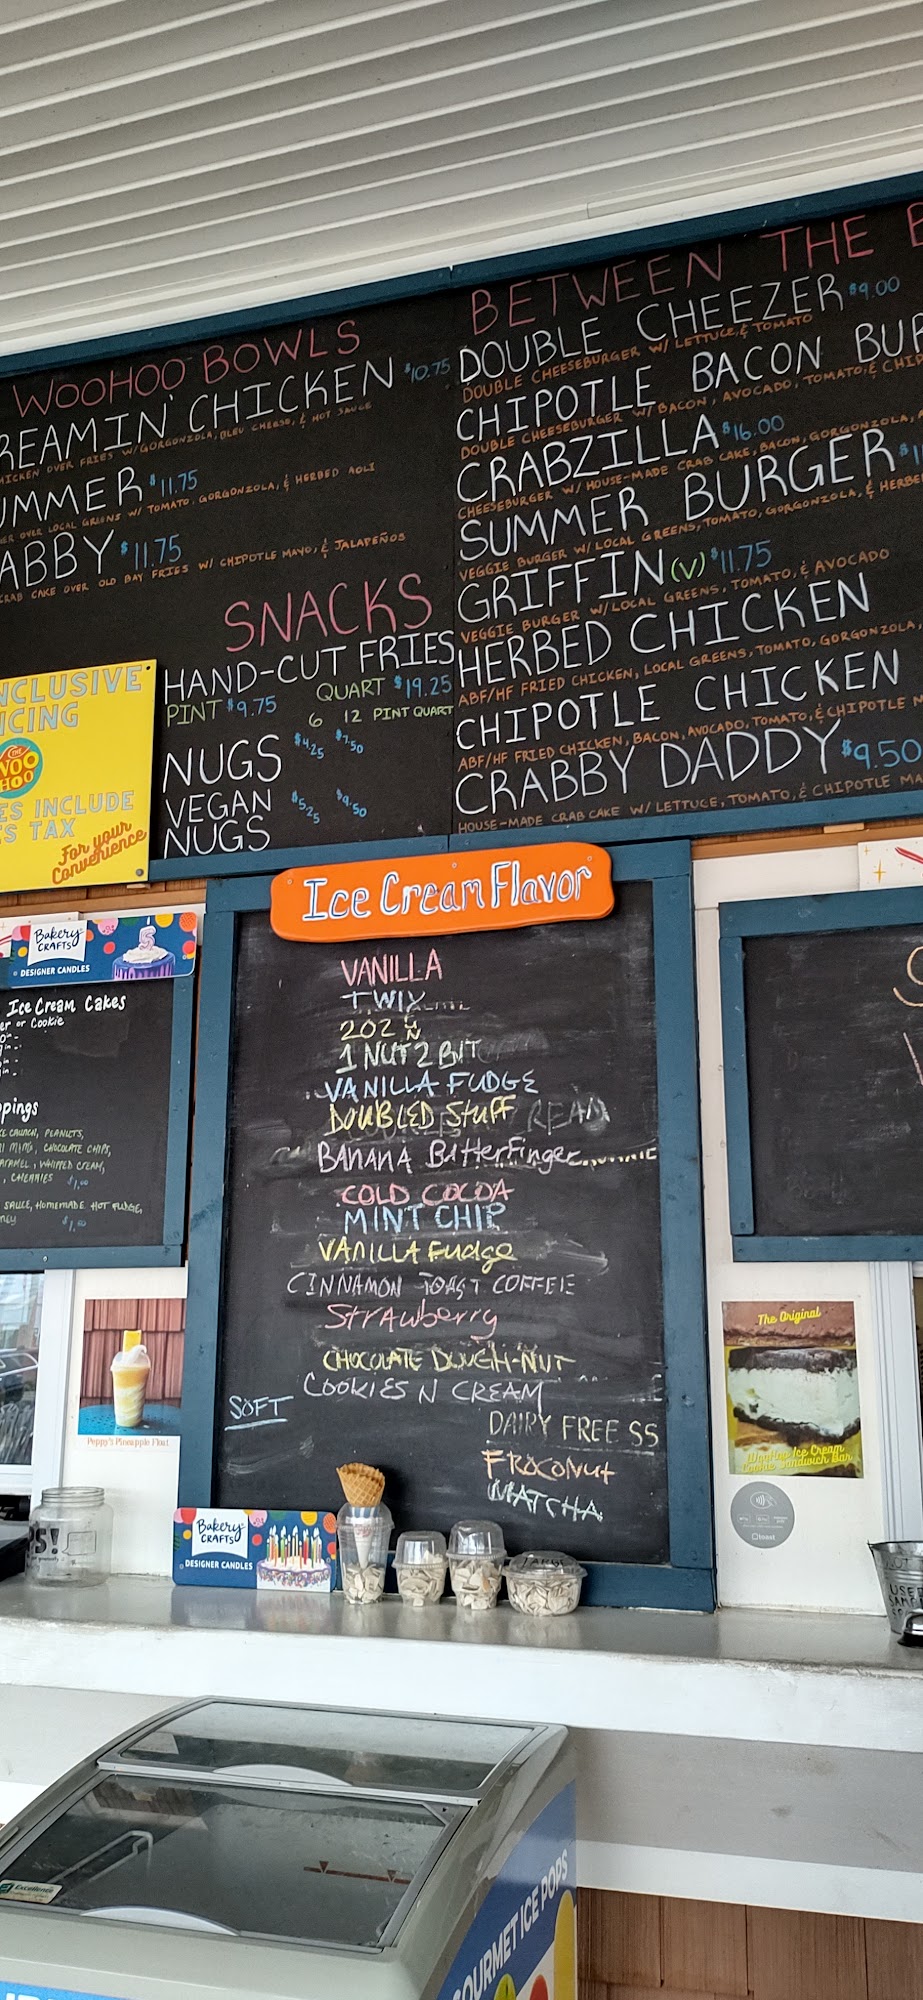 WOOHOO BOWLS
REAMIN' CHICKEN $10.75
HICKEN OVER FRIES W/GORGONZOLA, BLEU CHEESE, & HOT SAUCE
UMMER $11.75
ER OVER LOCAL GREENS W/ TOMATO, GORGONZOLA, & HERBED AOLI
ABBY $11.75
CRAB CAKE OVER OLD BAY FRIES W/ CHIPOTLE MAYO, & JALAPEÑOS
SNACKS
HAND-CUT FRIES
PINT $9.75 QUART $19.25
6 12 PINT QUART
NUGS $4.25 $7.50
VEGAN $5.25 $9.50
NUGS
BETWEEN THE B
DOUBLE CHEEZER $9.00
DOUBLE CHEESEBURGER W/ LETTUCE, & TOMATO
CHIPOTLE BACON BUR
DOUBLE CHEESEBURGER W/ BACON, AVOCADO, TOMATO, & CHIP
CRABZILLA $16.00
CHEESEBURGER W/ HOUSE-MADE CRAB CAKE, BACON, GORGONZOLA,
SUMMER BURGER $1
VEGGIE BURGER W/ LOCAL GREENS, TOMATO, GORGONZOLA, & HERBE
GRIFFIN (V) $11.75
VEGGIE BURGER W/ LOCAL GREENS, TOMATO, & AVOCADO
HERBED CHICKEN
ABF/HF FRIED CHICKEN, LOCAL GREENS, TOMATO, GORGONZOLA,
CHIPOTLE CHICKEN
ABF/HF FRIED CHICKEN, BACON, AVOCADO, TOMATO, & CHIPOTLE
CRABBY DADDY $9.50
HOUSE-MADE CRAB CAKE W/ LETTUCE, TOMATO, & CHIPOTLE MA
NCLUSIVE
ICING
THE
WOO
HOO
ES INCLUDE
S TAX
For your
Convenience
Ice Cream Flavor
VANILLA
TWIX
202
1 NUT 2 BIT
VANILLA FUDGE
DOUBLED Stuff
BANANA Butterfinger
COLD COCOA
MINT CHIP
VANILLA Fudge
CINNAMON TOAST COFFEE
Strawberry
CHOCOLATE DOUGH-NUT
COOKIES N CREAM
SOFT
DAIRY FREE SS
FROCONUT
MATCHA
Bakery
CRAFTS
DESIGNER CANDLES
Ice Cream Cakes
er or Cookie
ppings
KE CRUNCH, PEANUTS,
I MINI, CHOCOLATE CHIPS,
ARAMEL, WHIPPED CREAM,
, CHERRIES $1.00
SAUCE, HOMEMADE HOT FUDGE,
NEY $1.50
Poppy's Pineapple Float
Bakery
CRAFTS
DESIGNER CANDLES
LARGE
The Original
WooHoo Ice Cream
Cookie Sandwich Bar
toast
S!
USE
Excellence
GOURMET ICE POPS